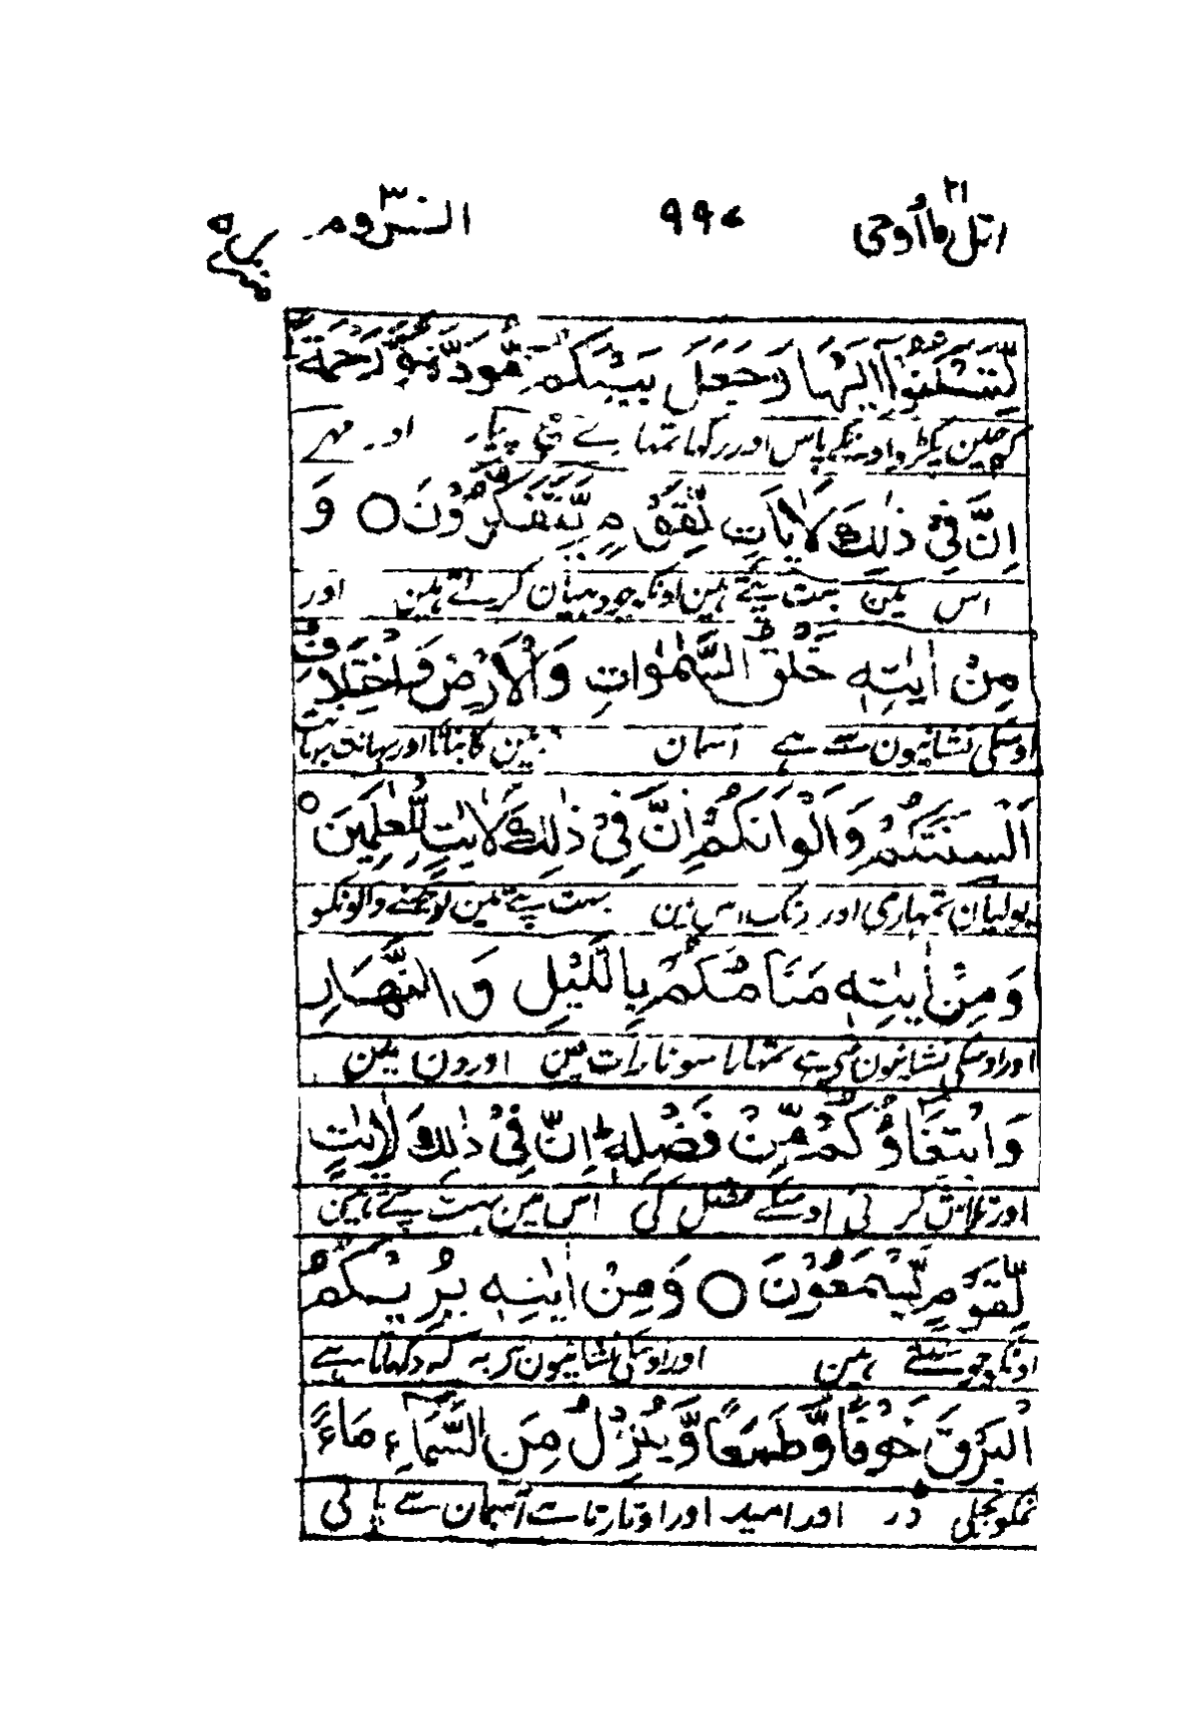 اتل ما اوحی ۲۱ ۹۹۷ الروم ۳۰
لِّتَسْكُنُوْٓا اِلَيْهَا وَجَعَلَ بَيْنَكُمْ مَّوَدَّةً وَّرَحْمَةً
چین پکڑو اونکے پاس اور رکھا تمہارے بیچ پیار اور مہر
اِنَّ فِيْ ذٰلِكَ لَاٰيَاتٍ لِّقَوْمٍ يَّتَفَكَّرُوْنَ ○ وَ
اس مین بہت پتے ہین اونکو جو دہیان کرتے ہین اور
مِنْ اٰيٰتِهٖ خَلْقُ السَّمٰوَاتِ وَالْاَرْضِ وَاخْتِلَافُ
اوسکی نشانیون سے ہے آسمان زمین کا بنانا اور بہانت بہانت
اَلْسِنَتِكُمْ وَاَلْوَانِكُمْ اِنَّ فِيْ ذٰلِكَ لَاٰيٰتٍ لِّلْعٰلِمِيْنَ ○
بولیان تمہاری اور رنگ اس مین بہت پتے ہین بوجھنے والونکو
وَمِنْ اٰيٰتِهٖ مَنَامُكُمْ بِالَّيْلِ وَالنَّهَارِ
اور اوسکی نشانیون سے ہے تمہارا سونا رات مین اور دن مین
وَابْتِغَآؤُكُمْ مِّنْ فَضْلِهٖ ؕ اِنَّ فِيْ ذٰلِكَ لَاٰيٰتٍ
اور تلاش کرنی اوسکے فضل کی اس مین بہت پتے ہین
لِّقَوْمٍ يَّسْمَعُوْنَ ○ وَمِنْ اٰيٰتِهٖ يُرِيْكُمُ
اونکو جو سنتے ہین اور اوسکی نشانیون سے یہ کہ دکہاتا ہے
الْبَرْقَ خَوْفًا وَّطَمَعًا وَّيُنَزِّلُ مِنَ السَّمَآءِ مَآءً
تمکو بجلی ڈر اور امید اور اوتارتا ہے آسمان سے پانی